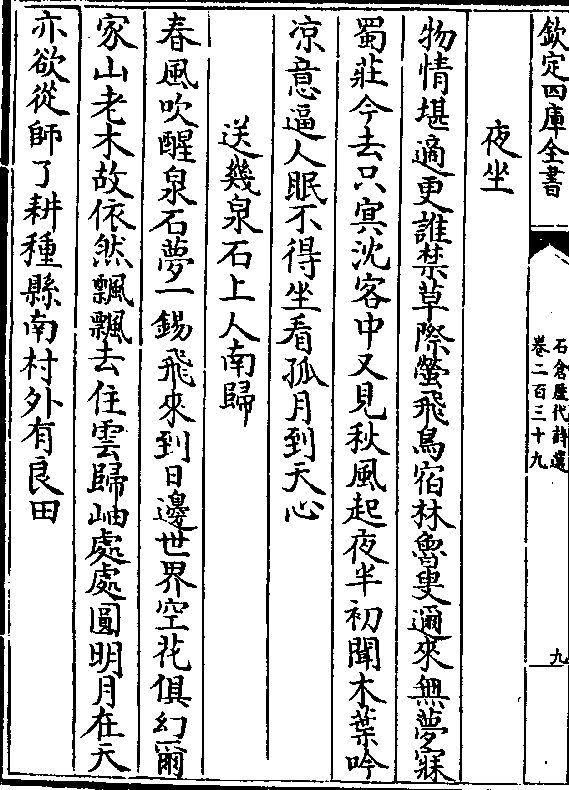 欽定四庫全書
石倉歷代詩選
卷二百三十九
九
夜坐
物情堪適更誰禁草際螢飛鳥宿林魯叟邇來無夢寐
蜀莊今去只冥沈客中又見秋風起夜半初聞木葉吟
凉意逼人眠不得坐看孤月到天心
送幾泉石上人南歸
春風吹醒泉石夢一錫飛來到日邊世界空花俱幻爾
家山老木故依然飄飄去住雲歸岫處處圓明月在天
亦欲從師了耕種縣南村外有良田